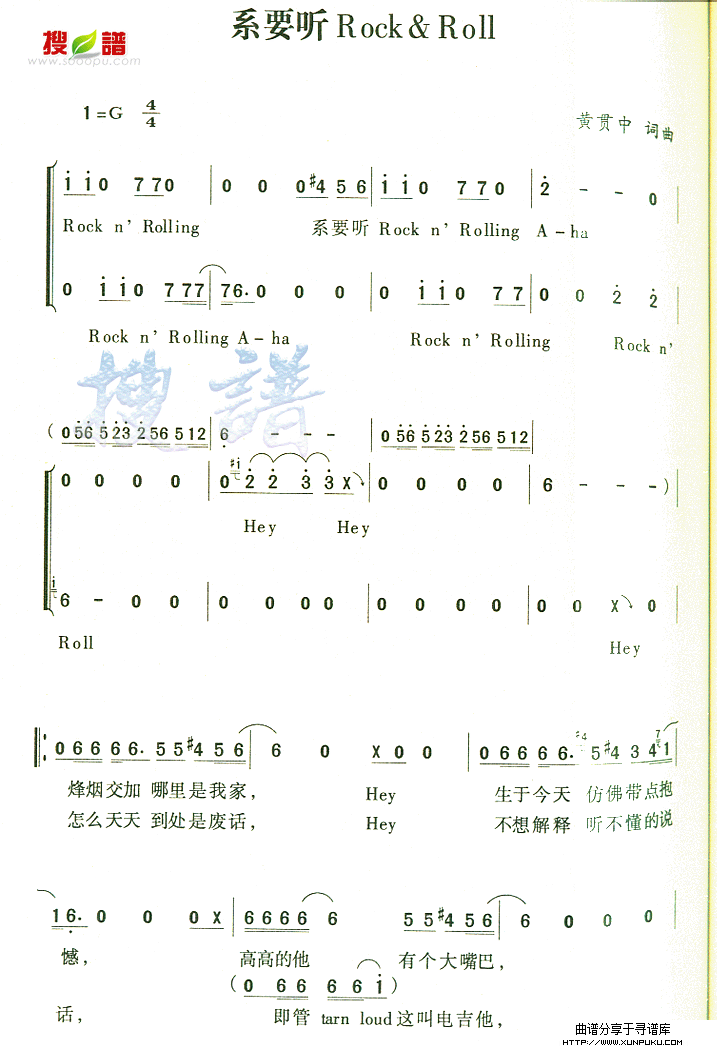 系要听 Rock & Roll
搜 譜
www.sooopu.com
1=G 4/4
黄贯中 词曲
i i 0 7 7 0 | 0 0 0 #4 5 6 | i i 0 7 7 0 | 2 - - 0
Rock n' Rolling 系要听 Rock n' Rolling A-ha
0 i i 0 7 77 | 76. 0 0 0 | 0 i i 0 7 7 | 0 0 2 2
Rock n' Rolling A-ha Rock n' Rolling Rock n'
搜 譜
( 0 56 5 23 2 56 5 12 | 6 - - - | 0 56 5 23 2 56 5 12
0 0 0 0 | 0 #i 2 2 3 3 X | 0 0 0 0 | 6 - - - )
Hey Hey
i 6 - 0 0 | 0 0 0 0 0 | 0 0 0 0 | 0 0 X 0
Roll Hey
0 6 6 6 6 6. 5 5 #4 5 6 | 6 0 X 0 0 | 0 6 6 6 6. #4 5 #4 3 4 7 1
烽烟交加 哪里是我家, Hey 生于今天 仿佛带点抱
怎么天天 到处是废话, Hey 不想解释 听不懂的说
1 6. 0 0 0 X | 6 6 6 6 6 6 5 5 #4 5 5 6 | 6 0 0 0
憾, 高高的他 有个大嘴巴,
( 0 6 6 6 6 i )
话, 即管 tarn loud 这叫电吉他,
曲谱分享于寻谱库
HTTP://WWW.XUNPUKU.COM